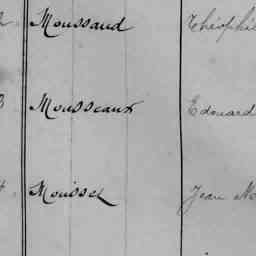 Moussaud Théophi
Mousseaux Edouard
Mousset Jean